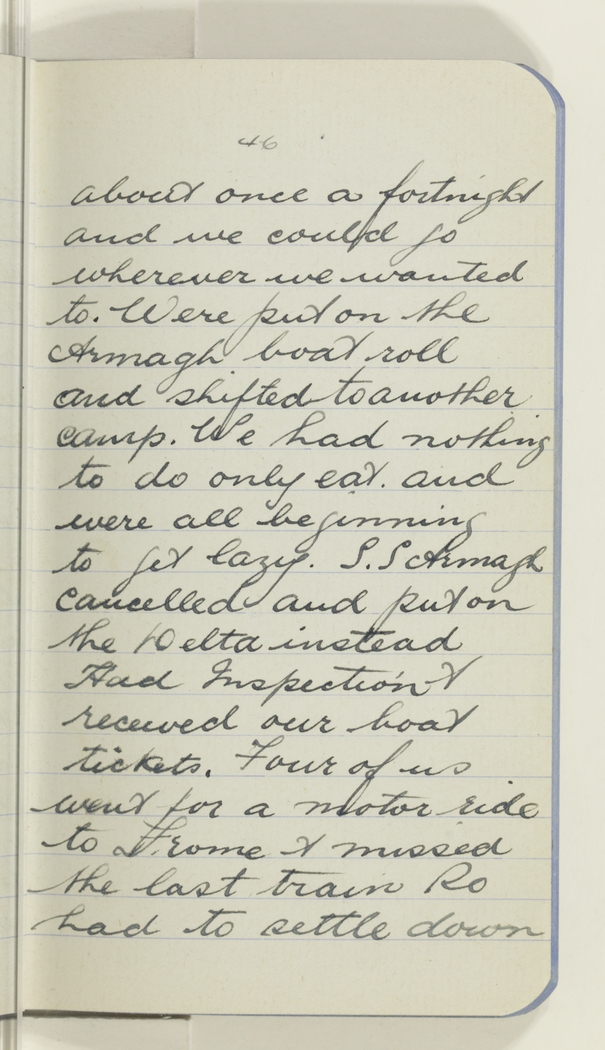 46
about once a fortnight
and we could go
wherever we wanted
to. Were put on the
Armagh boat roll
and shifted to another
camp. We had nothing
to do only eat. and
were all beginning
to get lazy. S.S Armagh
cancelled and put on
the Delta instead
Had Inspection &
received our boat
tickets. Four of us
went for a motor ride
to Frome & missed
the last train So
had to settle down